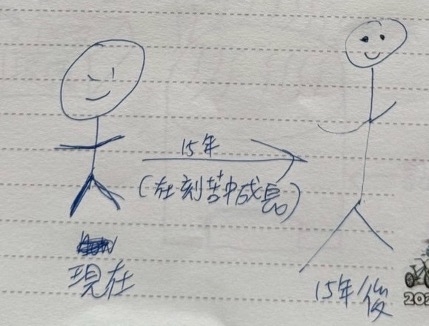 15年
(在刻苦中成長)
現在
15年後
202